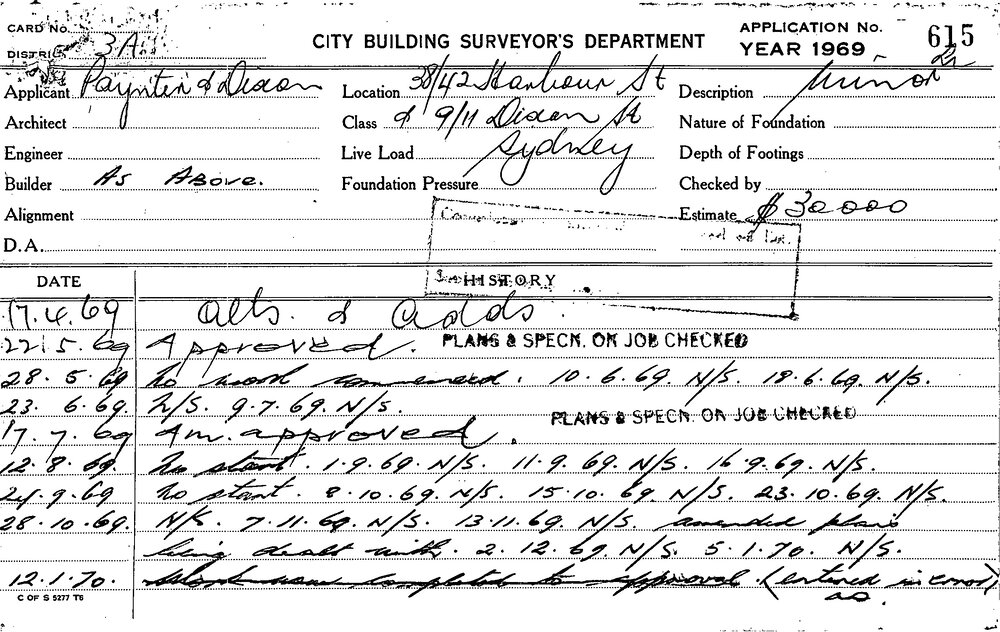 CARD No.
DISTRICT 3A.
CITY BUILDING SURVEYOR'S DEPARTMENT
APPLICATION No. 615
YEAR 1969
Applicant Paynter & Dixon Location 38/42 Harbour St Description Minor
Architect Class & 9/11 Dixon St Nature of Foundation
Engineer Live Load Sydney Depth of Footings
Builder As Above. Foundation Pressure Checked by
Alignment Estimate $30000
D.A.
DATE HISTORY
17.4.69 Alts. & Adds.
22.5.69 Approved. PLANS & SPECN. ON JOB CHECKED
28.5.69 No work commenced. 10.6.69. N/S. 18.6.69. N/S.
23.6.69. N/S. 9.7.69. N/S. PLANS & SPECN. ON JOB CHECKED
17.7.69 Am. approved.
12.8.69. No start. 1.9.69. N/S. 11.9.69. N/S. 16.9.69. N/S.
24.9.69 No start. 8.10.69. N/S. 15.10.69 N/S. 23.10.69. N/S.
28.10.69. N/S. 7.11.69. N/S. 13.11.69. N/S. amended plans
being dealt with. 2.12.69. N/S. 5.1.70. N/S.
12.1.70. Work now completed to approval (entered in error)
C OF S 5277 T6